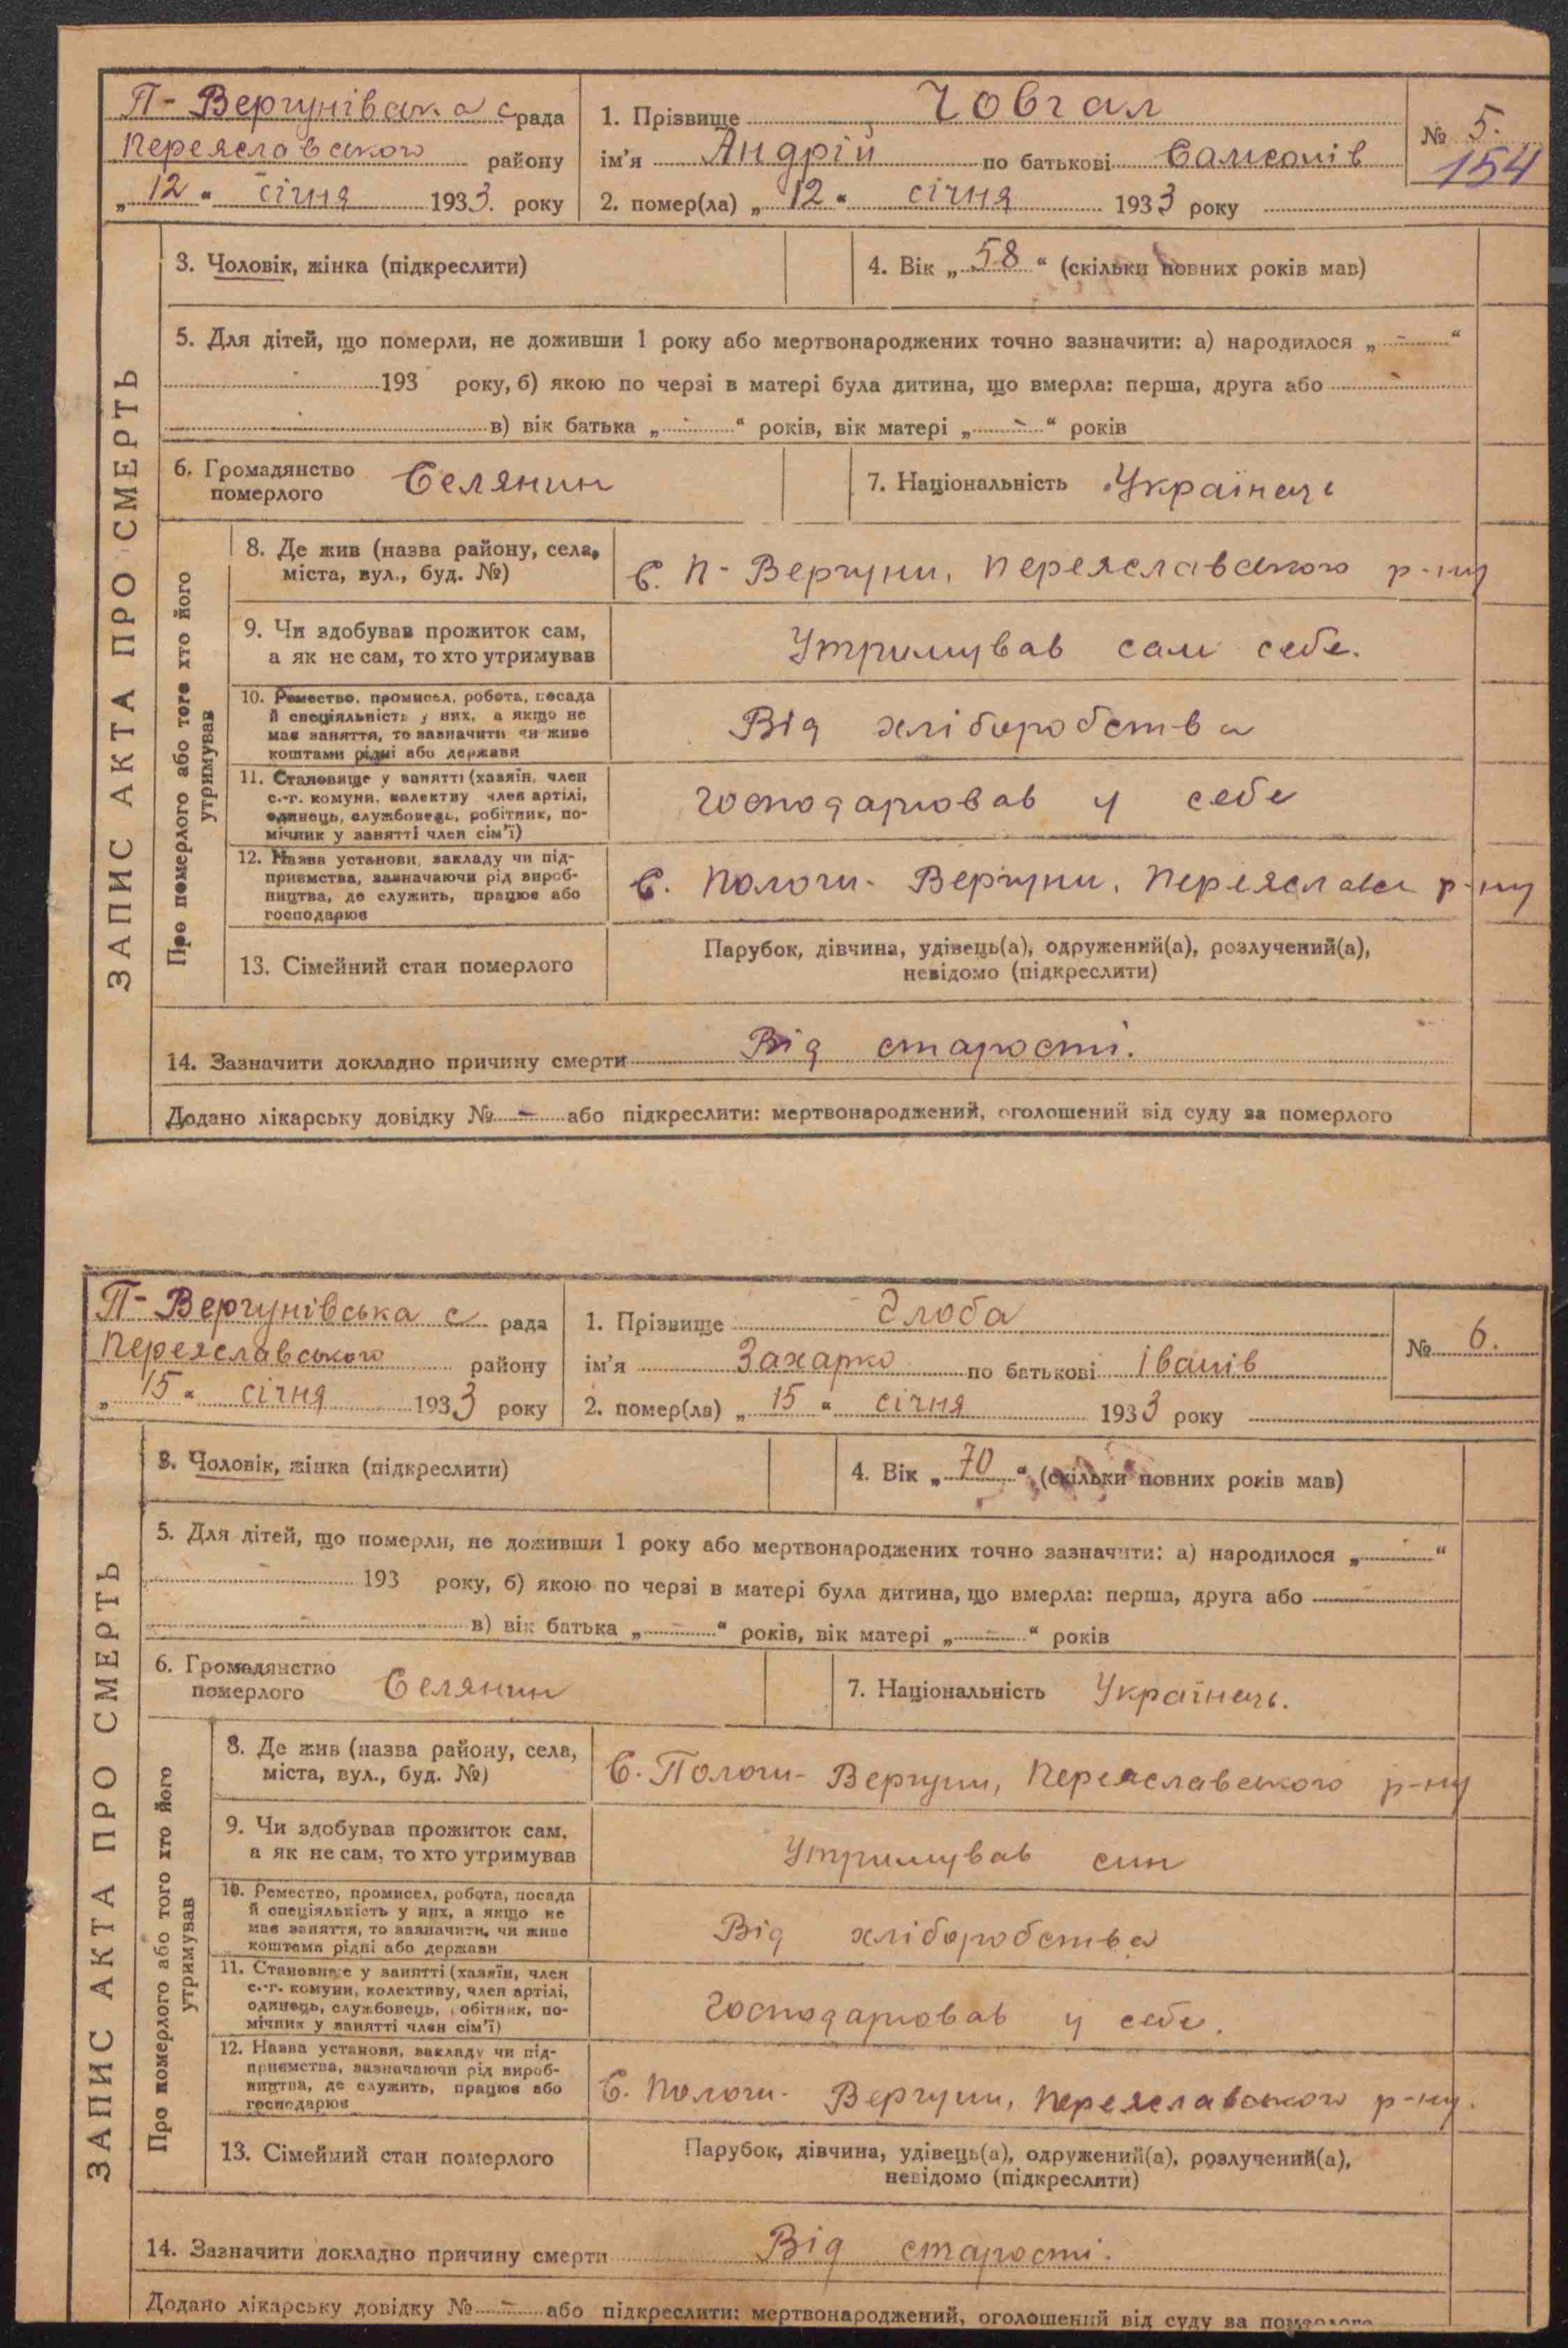 П- Вергунівська с рада
Переяславського району
„ 12 " січня 1933. року
1. Прізвище Човгал
ім'я Андрій по батькові Самсонів
2. помер(ла) „ 12 " січня 1933 року
№ 5.
154
ЗАПИС АКТА ПРО СМЕРТЬ
3. Чоловік, жінка (підкреслити)
4. Вік „ 58 " (скільки повних років мав)
5. Для дітей, що померли, не доживши 1 року або мертвонароджених точно зазначити: а) народилося „ - "
193 року, б) якою по черзі в матері була дитина, що вмерла: перша, друга або -
в) вік батька „ - " років, вік матері „ - " років
6. Громадянство
померлого Селянин
7. Національність Українець
Про померлого або того хто його
утримував
8. Де жив (назва району, села,
міста, вул., буд. №)
С. П- Вергуни, Переяславського р-ну
9. Чи здобував прожиток сам,
а як не сам, то хто утримував
Утримував сам себе.
10. Ремество, промисел, робота, посада
й спеціяльність у них, а якщо не
має заняття, то зазначити чи живе
коштами рідні або держави
Від хліборобства
11. Становище у занятті (хазяїн, член
с.-г. комуни, колективу член артілі,
одинець, службовець, робітник, по-
мічник у занятті член сім'ї)
господарював у себе
12. Назва установи, закладу чи під-
приємства, зазначаючи рід вироб-
ництва, де служить, працює або
господарює
С. Пологи- Вергуни, Переяслав р-ну
13. Сімейний стан померлого
Парубок, дівчина, удівець(а), одружений(а), розлучений(а),
невідомо (підкреслити)
14. Зазначити докладно причину смерти Від старости.
Додано лікарську довідку № - або підкреслити: мертвонароджений, оголошений від суду за померлого
П- Вергунівська с рада
Переяславського району
„ 15 " січня 1933 року
1. Прізвище Злоба
ім'я Захарко по батькові Іванів
2. помер(ла) „ 15 " січня 1933 року
№ 6.
ЗАПИС АКТА ПРО СМЕРТЬ
3. Чоловік, жінка (підкреслити)
4. Вік „ 70 " (скільки повних років мав)
5. Для дітей, що померли, не доживши 1 року або мертвонароджених точно зазначити: а) народилося „ - "
193 року, б) якою по черзі в матері була дитина, що вмерла: перша, друга або
в) вік батька „ - " років, вік матері „ - " років
6. Громадянство
померлого Селянин
7. Національність Українець.
Про померлого або того хто його
утримував
8. Де жив (назва району, села,
міста, вул., буд. №)
С. Пологи- Вергуни, Переяславського р-ну
9. Чи здобував прожиток сам,
а як не сам, то хто утримував
Утримував син
10. Ремество, промисел, робота, посада
й спеціяльність у них, а якщо не
має заняття, то зазначити, чи живе
коштами рідні або держави
Від хліборобства
11. Становище у занятті (хазяїн, член
с.-г. комуни, колективу, член артілі,
одинець, службовець, робітник, по-
мічник у занятті член сім'ї)
господарював у себе.
12. Назва установи, закладу чи під-
приємства, зазначаючи рід вироб-
ництва, де служить, працює або
господарює
С. Пологи- Вергуни, Переяславського р-ну.
13. Сімейний стан померлого
Парубок, дівчина, удівець(а), одружений(а), розлучений(а),
невідомо (підкреслити)
14. Зазначити докладно причину смерти Від старости.
Додано лікарську довідку № - або підкреслити: мертвонароджений, оголошений від суду за померлого